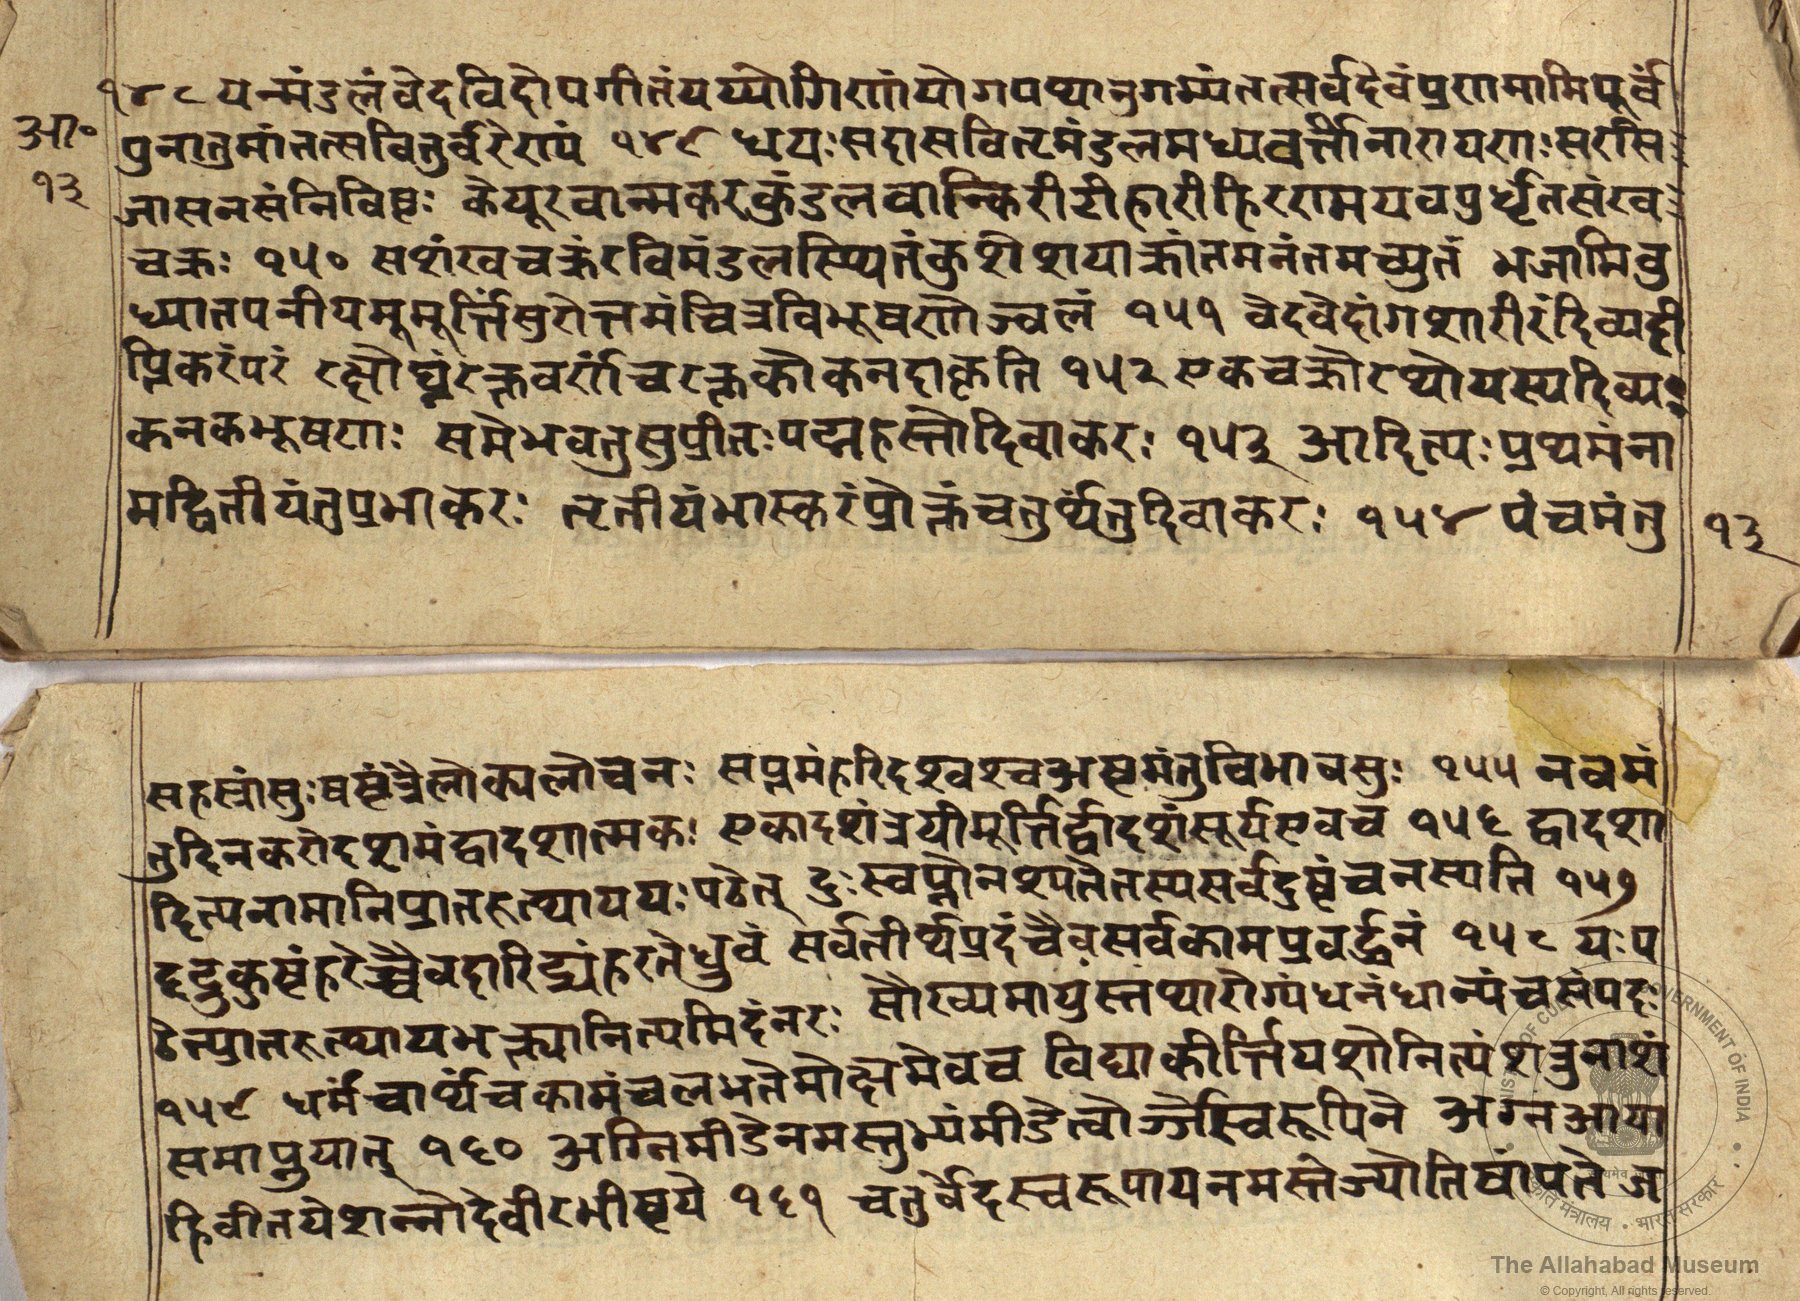 १४८ यन्मंडलंवेदविदोपगीतंयय्योगिणांयोगपथानुगम्यंतत्सर्वदेवंप्रणमामिपूर्वं
आ॰
पुनातुमांतत्सवितुर्वरेण्यं १४९ ध्येयःसदासवितृमंडलमध्यवर्त्तीनारायणःसरसि
१३
जासनसंनिविष्टः केयूरवान्मकरकुंडलवान्किरीटीहारीहिरण्मयवपुर्धृतसंख
चक्रः १५० सशंखचक्रंरविमंडलस्थितंकुशेशयाक्रांतमनंतमच्युतं भजामिबु
ध्यातपनीयमूमूर्त्तिंसुरोत्तमंचित्रविभूषणोज्वलं १५१ वेदवेदांगशारीरंदिव्यदी
प्तिकरंपरं रक्तवर्णंच १५२ एकचक्रोरथोयस्यदिव्यः
कनकभूषणः समेभवतुसुप्रीतःपद्महस्तोदिवाकरः १५३ आदित्यःप्रथमंना
मद्वितीयंतुप्रभाकरः तृतीयंभास्करंप्रोक्तंचतुर्थंतुदिवाकरः १५४ पंचमंतु
१३
सहस्रांसुःषष्टंत्रैलोक्यलोचनः सप्तमंहरिदश्वश्चअष्टमंतुविभावसुः १५५ नवमं
तुदिनकरोदशमंद्वादशात्मकः एकादशंत्रयीमूर्त्तिर्द्वादशंसूर्यएवच १५६ द्वादशा
दित्यनामानिप्रातरुत्थाययःपठेत् दुःस्वप्नोनश्यतेतस्यसर्वदुष्टंचनस्यति १५७
दद्रुकुष्टंहरेच्चैवदारिद्र्यंहरतेध्रुवं सर्वतीर्थप्रदंचैवसर्वकामप्रवर्द्धनं १५८ यःप
ठेत्प्रातरुत्थायभक्त्यानित्यमिदंनरः सौख्यमायुस्तथारोग्यंधनंधान्यंचसंपदः
१५९ धर्मंचार्थंचकामंचलभतेमोक्षमेवच विद्याकीर्त्तियशोनित्यंशत्रुनाशं
समाप्नुयात् १६० अग्निमीडेनमस्तुभ्यंमीडेत्वोर्ज्जेस्विरूपिने अग्नआया
हिवीतयेशन्नोदेवीरभीष्टये १६१ चतुर्वेदस्वरूपायनमस्तेज्योतिषांपतेज
The Allahabad Museum
© Copyright, All rights reserved.